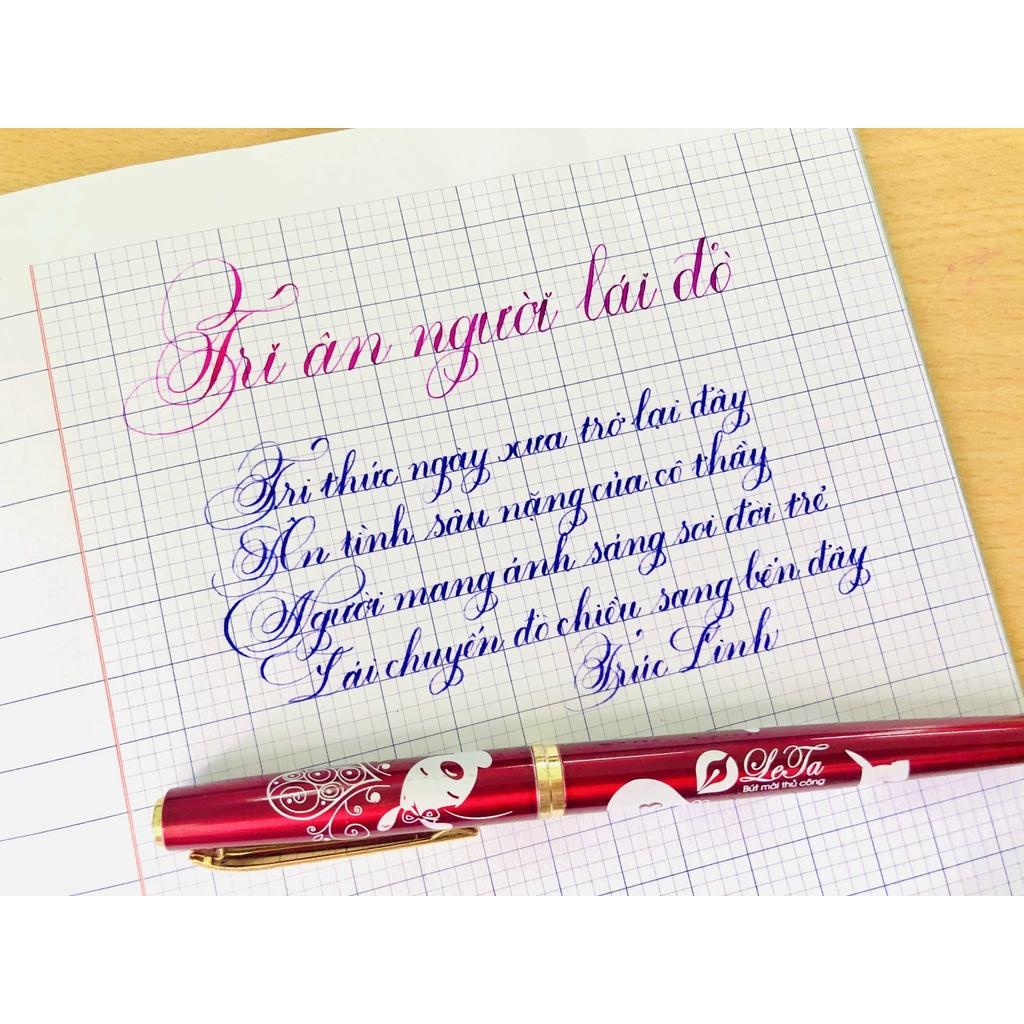 Tri ân người lái đò
Tri thức ngày xưa trở lại đây
Ân tình sâu nặng của cô thầy
Người mang ánh sáng soi đời trẻ
Lái chuyến đò chiều sang bến đây
Trúc Linh
LeTa
Bút mài thủ công